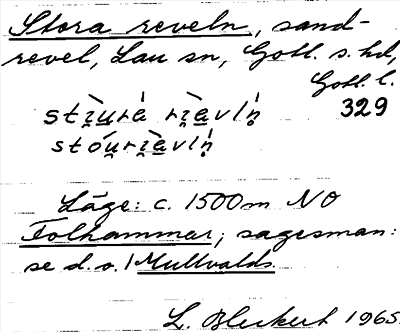 Stora reveln, sand-
revel, Lau sn, Gotl. s. hd,
Gotl. l.
329
Läge: c. 1500 m NO
Folhammar; sagesman:
se d. o. 1 Mullvalds
L. Bleckert 1965